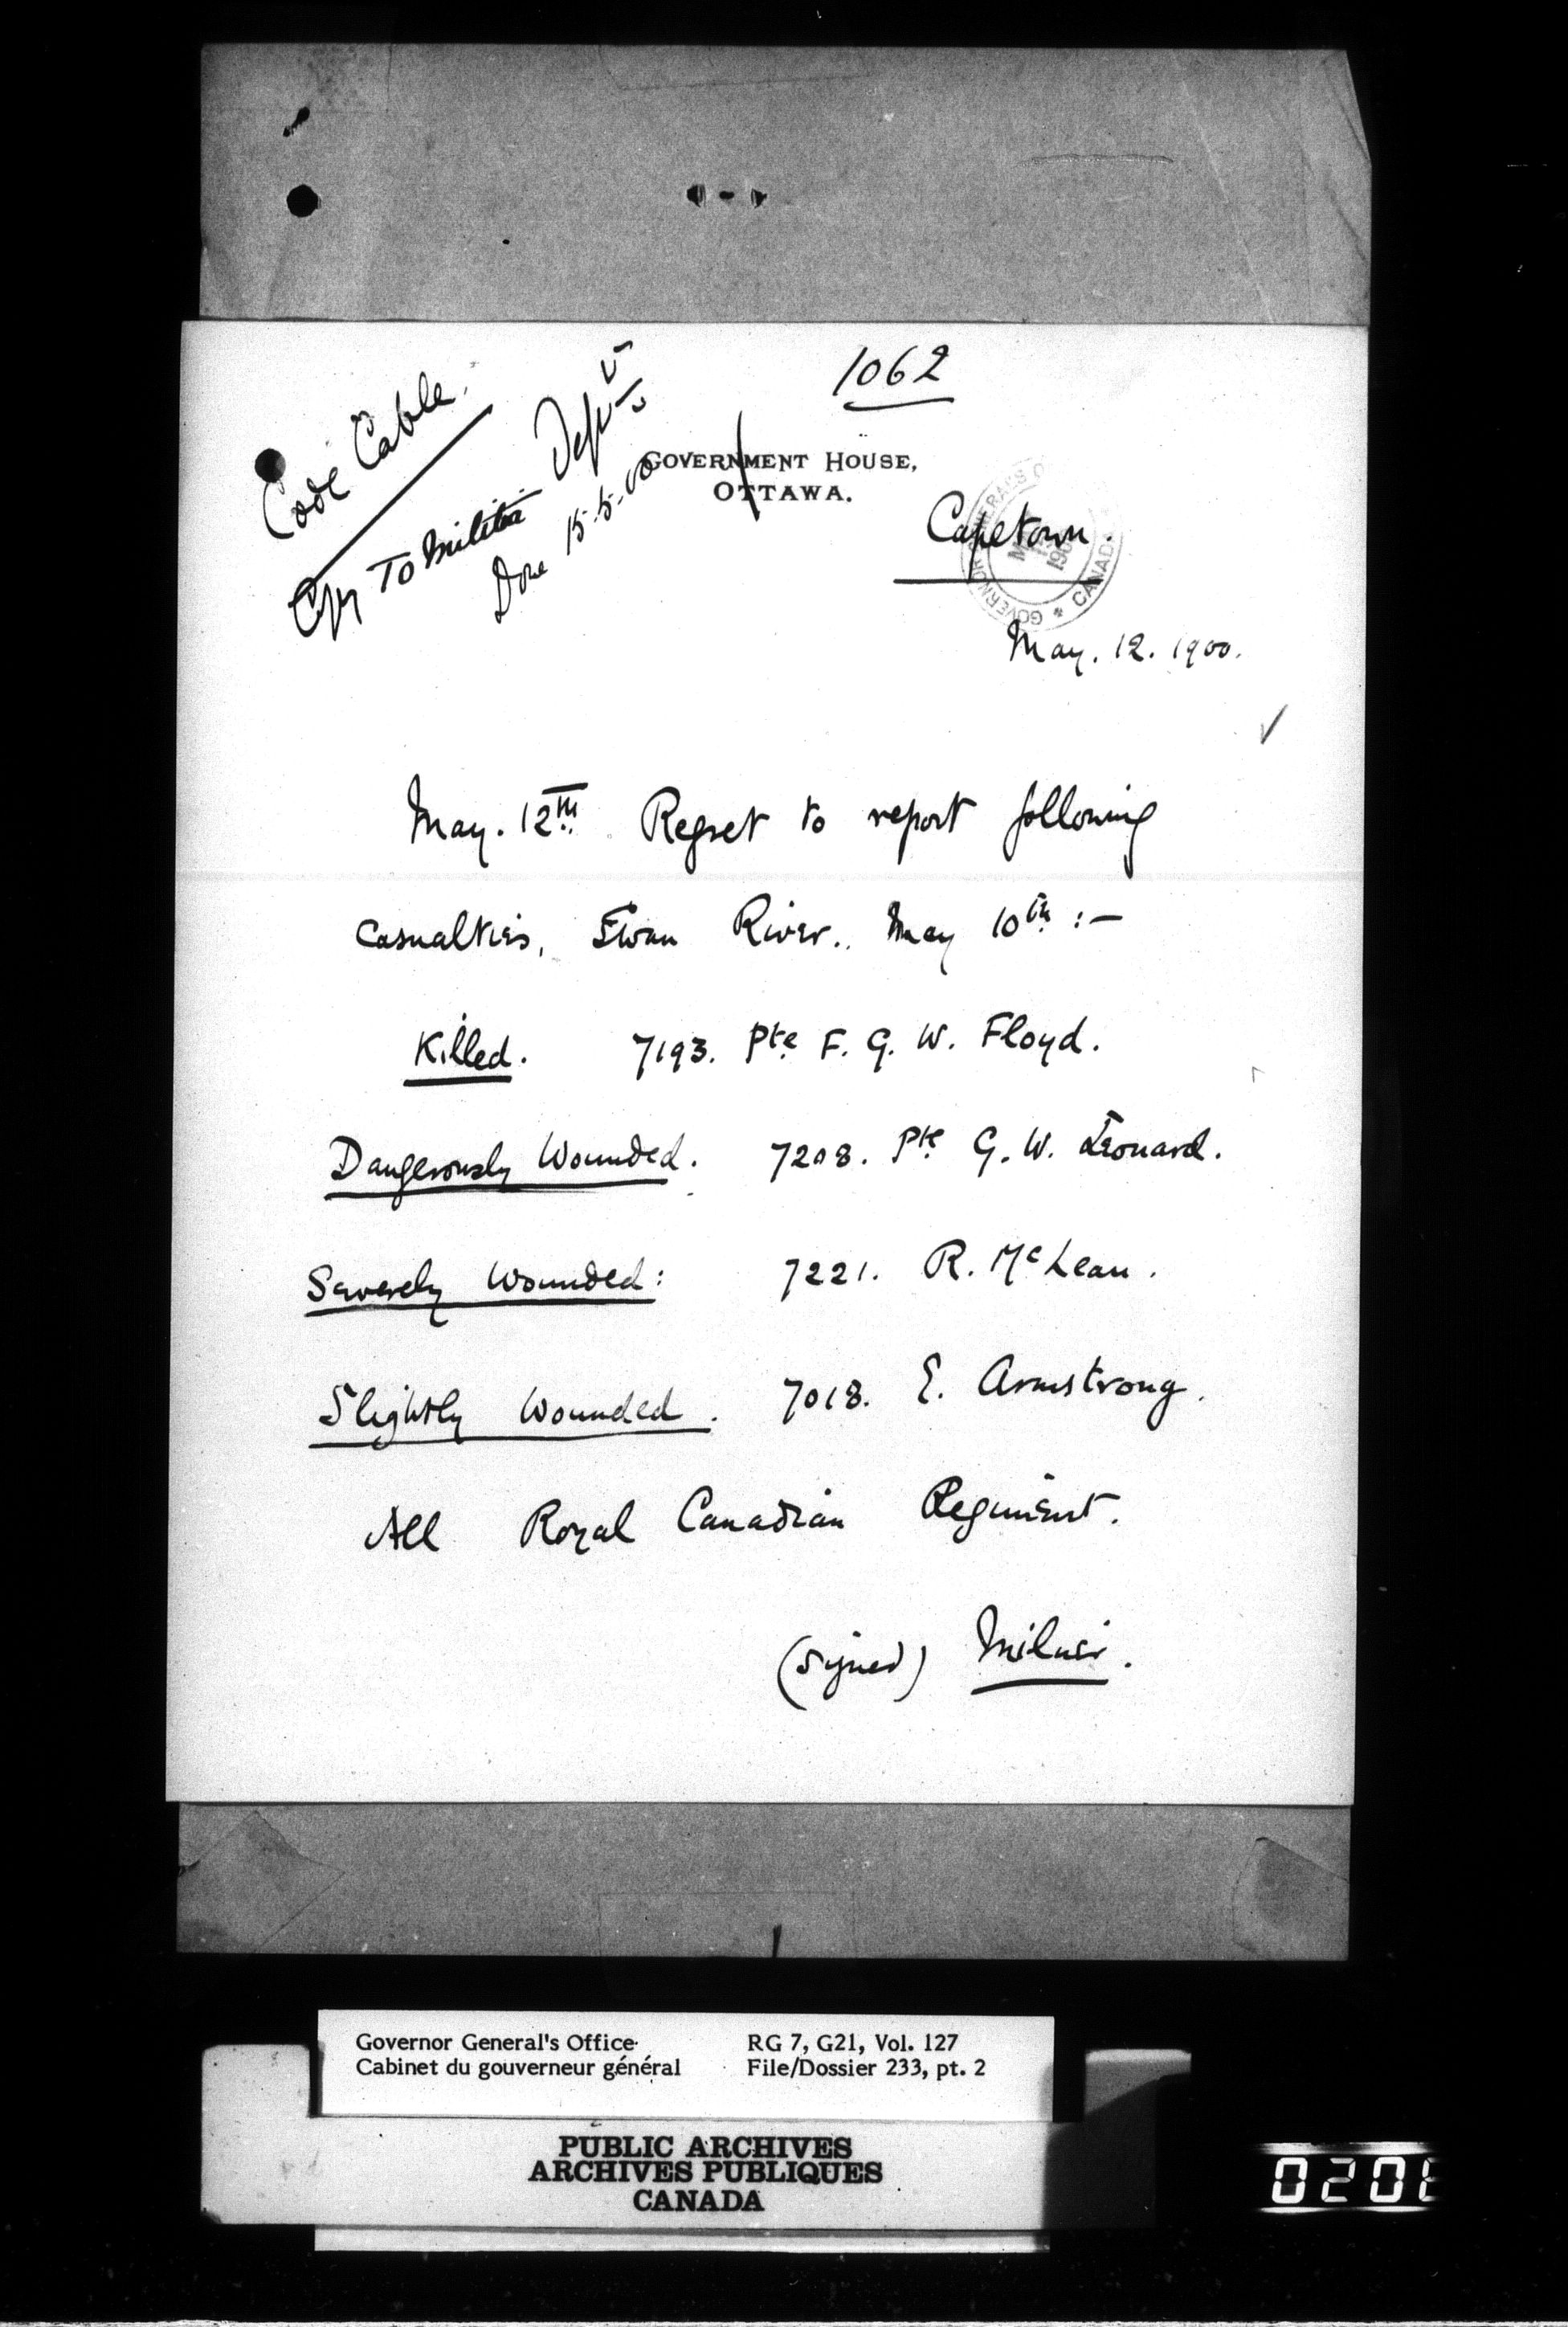 1062
Code Cable.
Copy To Militia Dept
Done 15-5-00
GOVERNMENT HOUSE,
OTTAWA.
Capetown.
GOVERNOR GENERAL'S O
CANADA
May. 12. 1900.
May. 12th. Regret to report following
casualties, Swan River.. May 10th :—
Killed. 7193. Pte F. G. W. Floyd.
Dangerously Wounded. 7208. Pte G. W. Leonard.
Severely Wounded: 7221. R. McLean.
Slightly Wounded. 7018. E. Armstrong.
All Royal Canadian Regiment.
(signed) Milner.
Governor General's Office RG 7, G21, Vol. 127
Cabinet du gouverneur général File/Dossier 233, pt. 2
PUBLIC ARCHIVES
ARCHIVES PUBLIQUES
CANADA